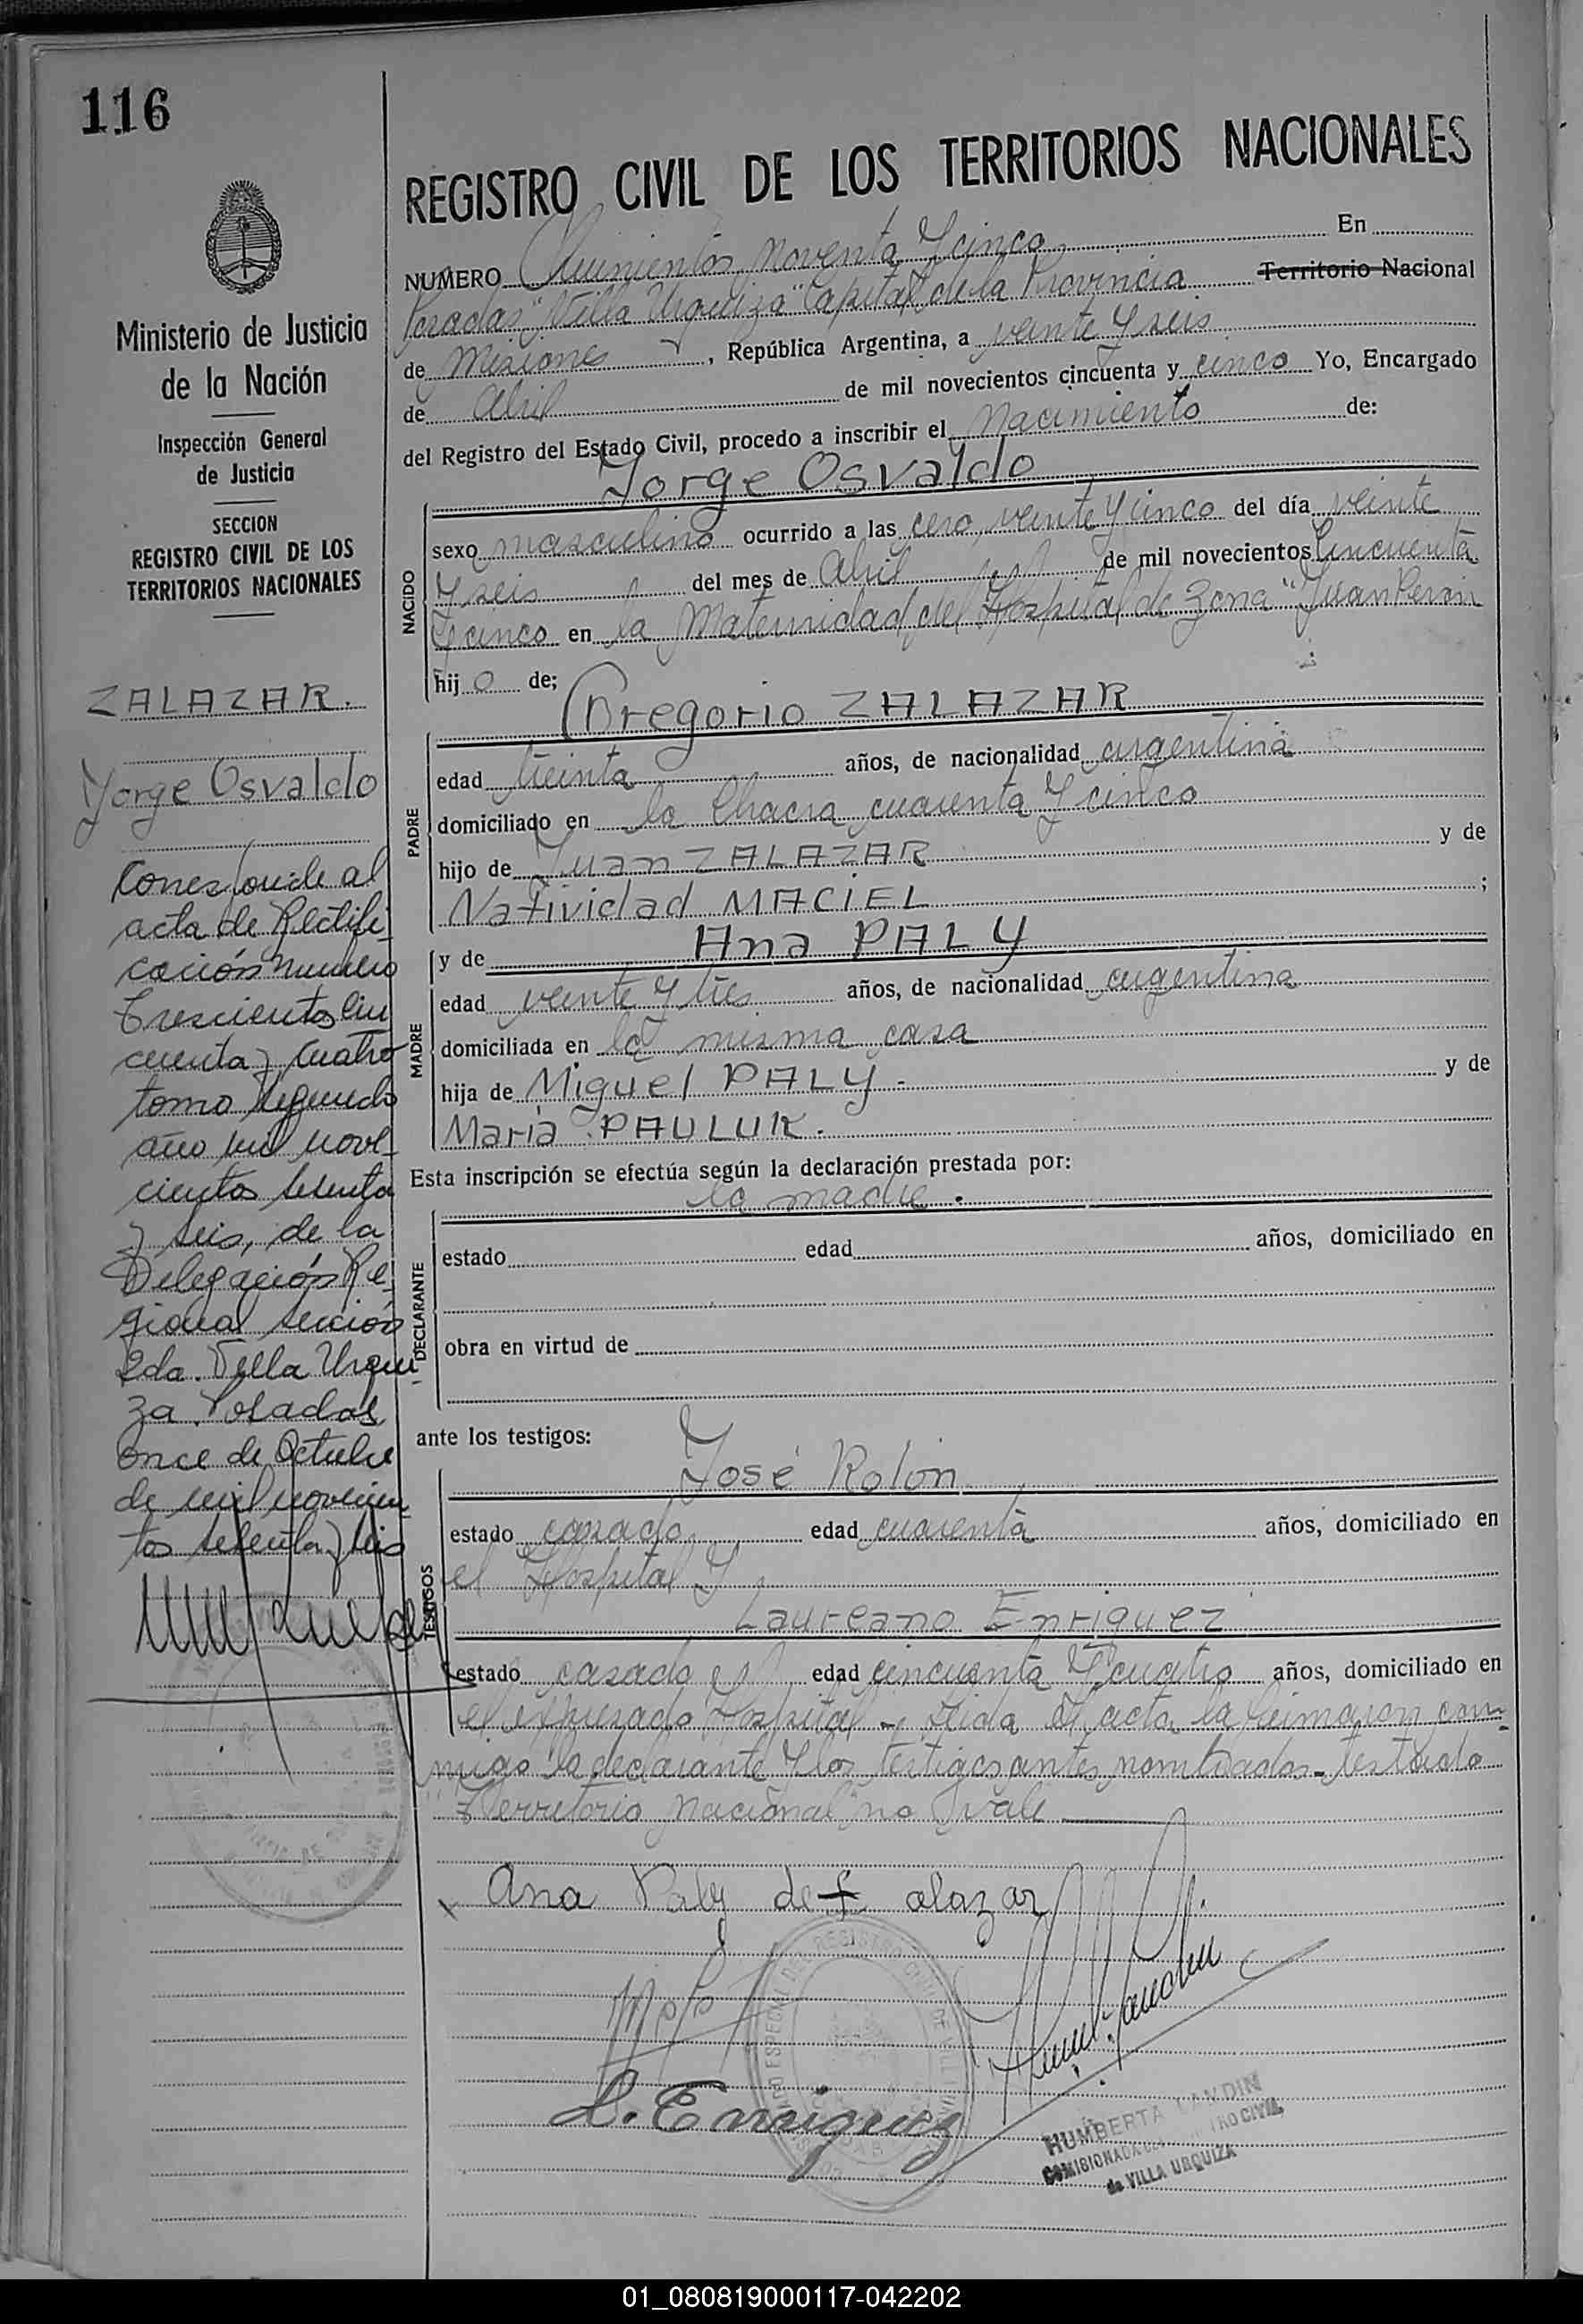 116
Ministerio de Justicia
de la Nación
Inspección General
de Justicia
SECCION
REGISTRO CIVIL DE LOS
TERRITORIOS NACIONALES
ZALAZAR.
Jorge Osvaldo
Corresponde al
acta de Rectifi-
cación numero
trescientos cin
cuenta y cuatro
tomo segundo
año mil nove-
cientos setenta
y seis, de la
Delegación Re-
gional sección
2da. Villa Urqui
za. Posadas
once de Octubre
de mil novecien
tos setenta y seis
REGISTRO CIVIL DE LOS TERRITORIOS NACIONALES
NUMERO Quinientos Noventa y cinco En
Posadas "Villa Urquiza" Capital de la Provincia Territorio Nacional
de Misiones , República Argentina, a veinte y seis
de Abril de mil novecientos cincuenta y cinco Yo, Encargado
del Registro del Estado Civil, procedo a inscribir el Nacimiento de:
Jorge Osvaldo
NACIDO
sexo masculino ocurrido a las cero, veinte y cinco del día veinte
y seis del mes de Abril de mil novecientos Cincuenta
y cinco en la Maternidad del Hospital de Zona "Juan Peron
hijo de;
Gregorio ZALAZAR
PADRE
edad treinta años, de nacionalidad argentina
domiciliado en la Chacra cuarenta y cinco
hijo de Juan ZALAZAR y de
Natividad MACIEL ;
y de Ana PALY
MADRE
edad veinte y tres años, de nacionalidad argentina
domiciliada en la misma casa
hija de Miguel PALY - y de
María PAULUK.
Esta inscripción se efectúa según la declaración prestada por:
la madre.
DECLARANTE
estado edad años, domiciliado en
obra en virtud de
ante los testigos:
José Rolón
TESTIGOS
estado casado edad cuarenta años, domiciliado en
el Hospital y
Laureano Enriquez
estado casado edad cincuenta y cuatro años, domiciliado en
el expresado Hospital - Leida el acta la firmaron con-
migo la declarante y los testigos antes nombrados - testado
"Territorio Nacional" no vale
Ana Paly de Zalazar
L. Enriquez
HUMBERTA
REGISTRO CIVIL
de VILLA URQUIZA
01_080819000117-042202